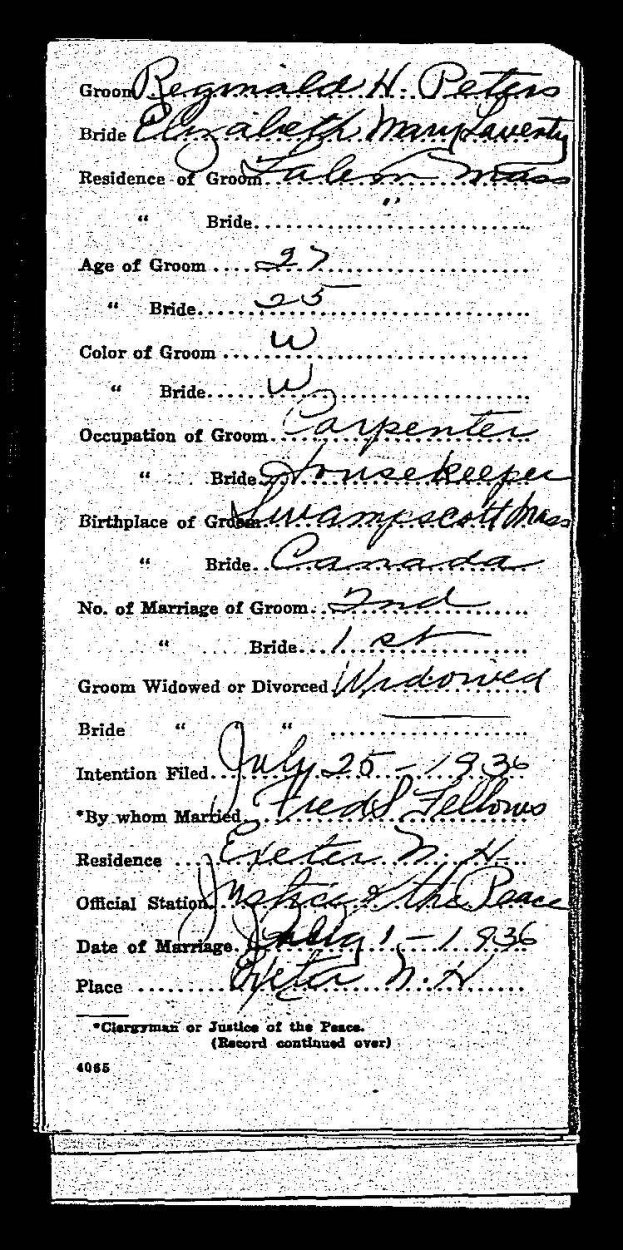 Groom Reginald H. Peters
Bride Elizabeth Mary Laverty
Residence of Groom Salem Mass
" Bride "
Age of Groom 27
" Bride 25
Color of Groom W
" Bride W
Occupation of Groom Carpenter
" Bride Housekeeper
Birthplace of Groom Swampscott Mass
" Bride Canada
No. of Marriage of Groom 2nd
" Bride 1st
Groom Widowed or Divorced Widowed
Bride " "
Intention Filed July 25 - 1936
*By whom Married Fred S Fellows
Residence Exeter N. H.
Official Station Justice of the Peace
Date of Marriage 1 - 1936
Place Exeter N. H
*Clergyman or Justice of the Peace.
(Record continued over)
4065